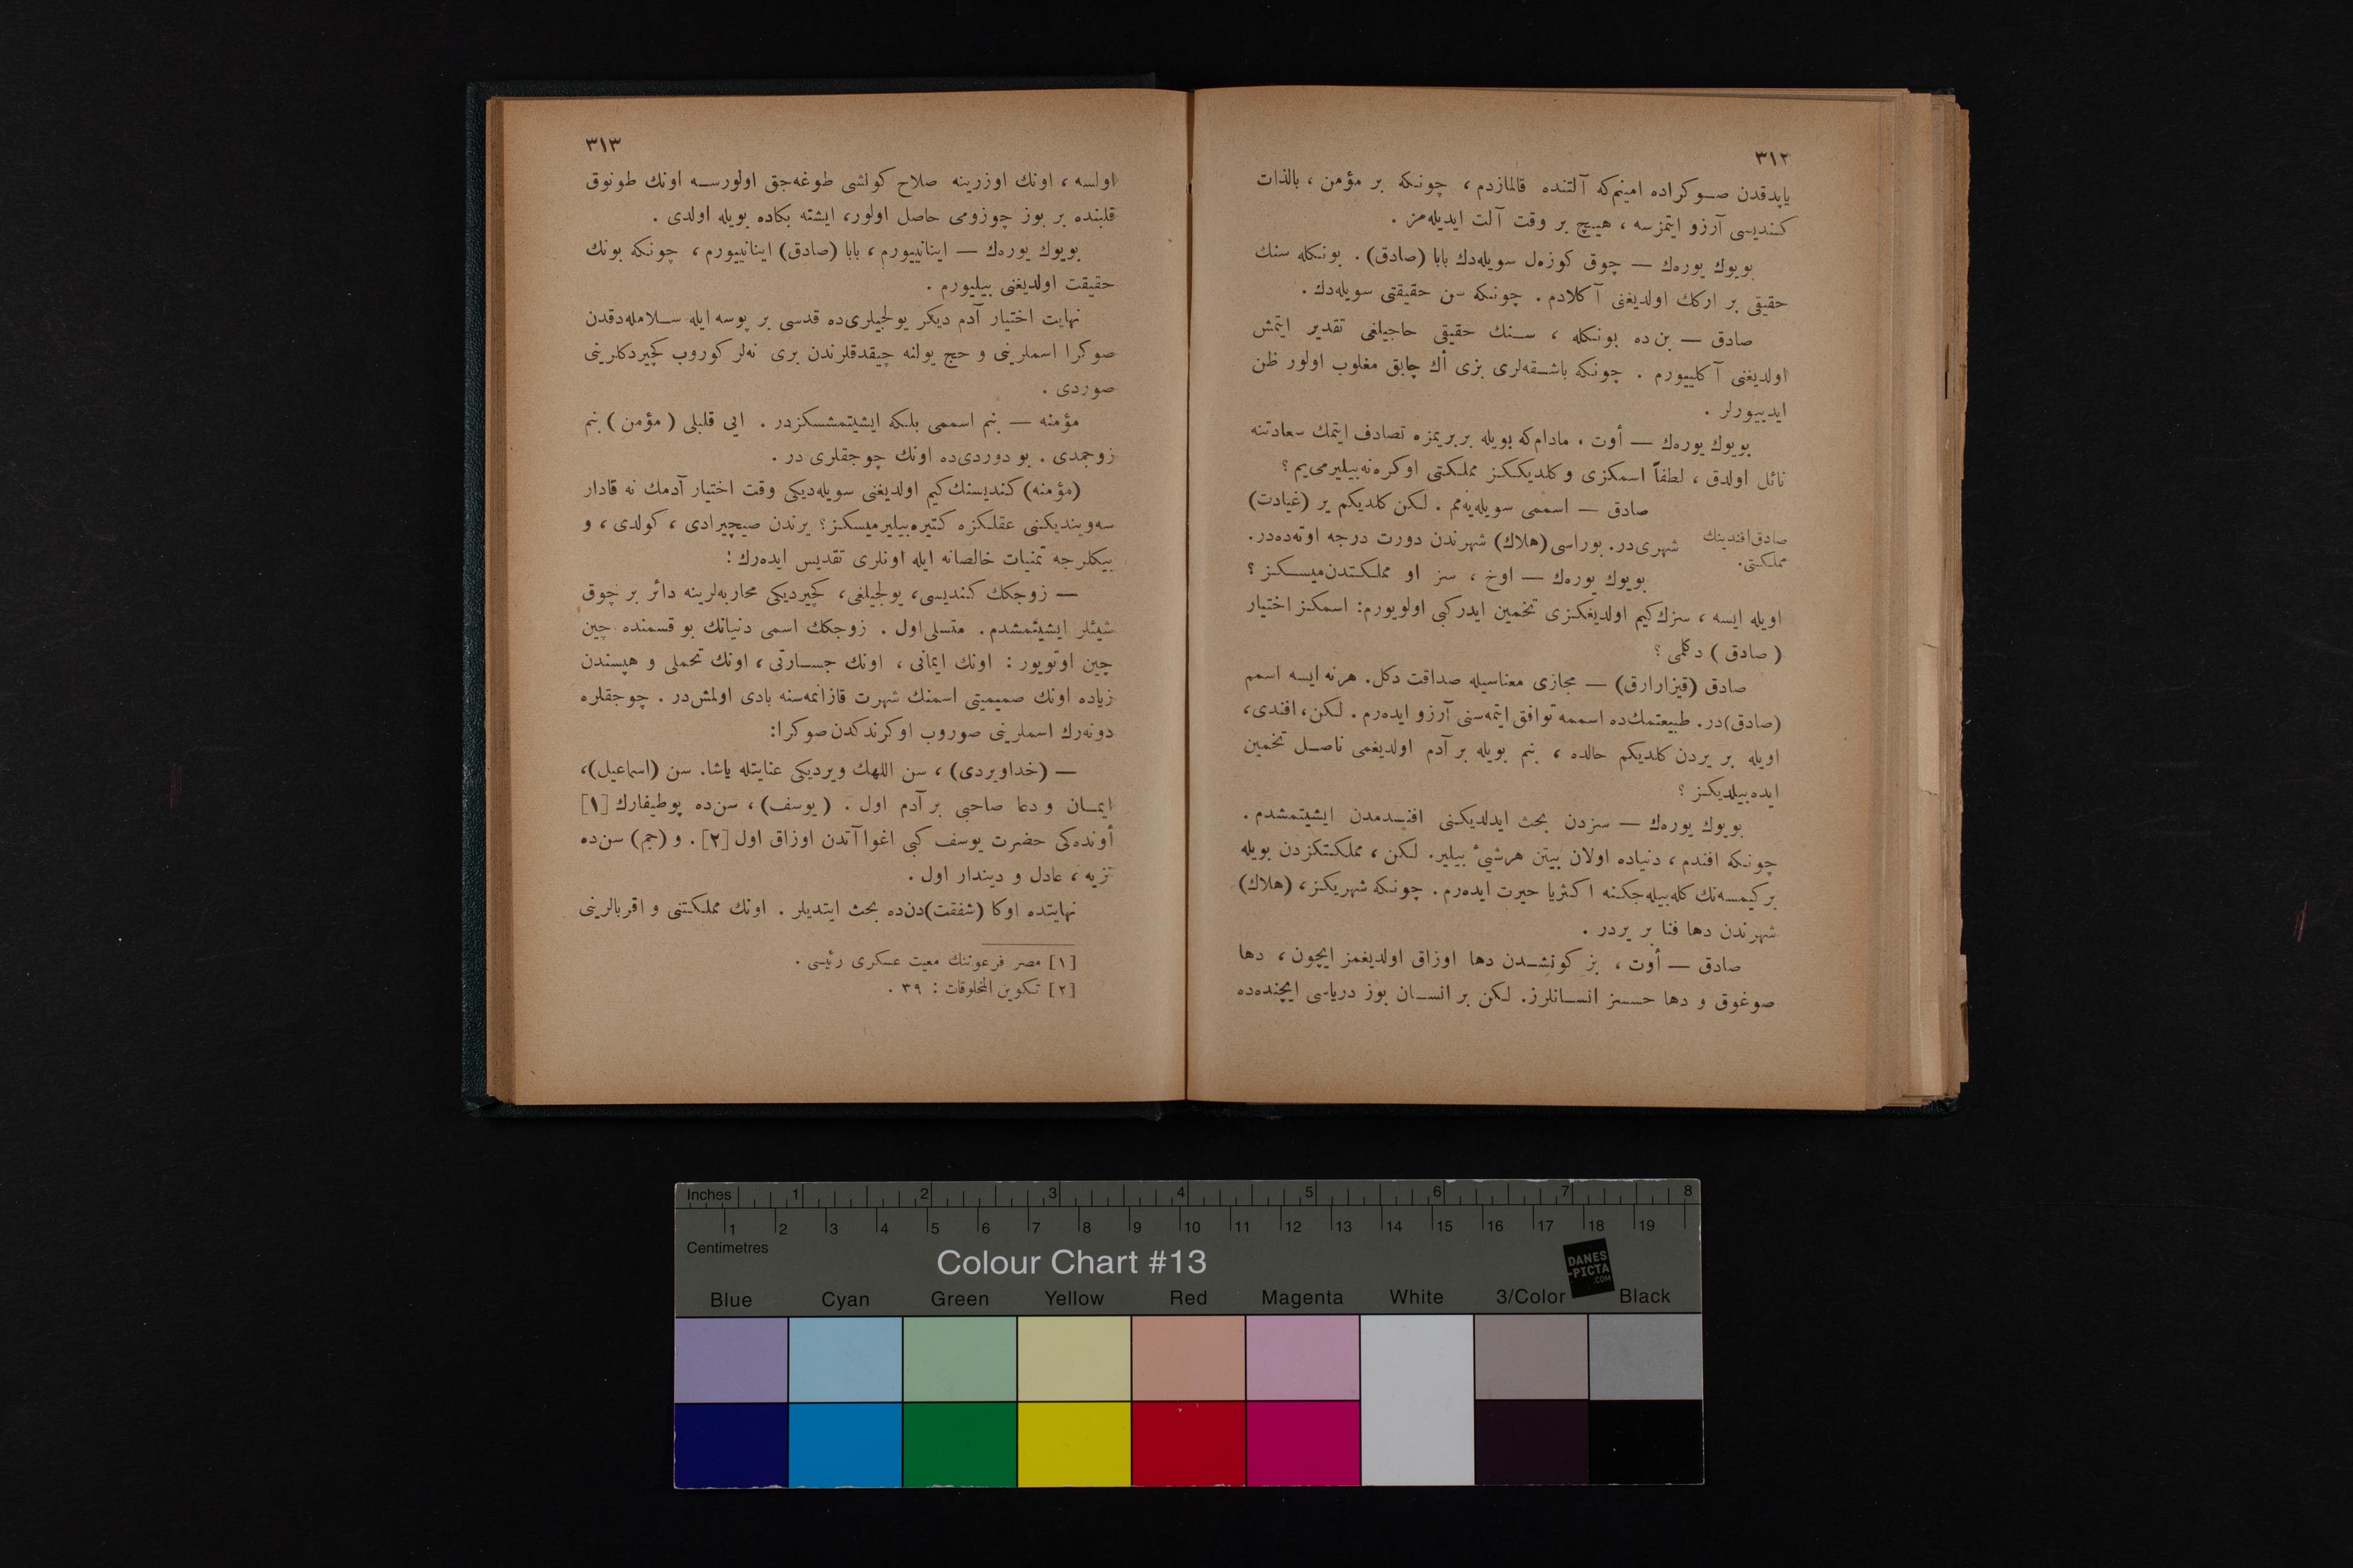 ٣١٢
یاپدقدن صوکراده امینم‌که آلتنده قالمازدم، چونکه بر مؤمن، بالذات
کندیسی آرزو ایتمزسه، هیچ بر وقت آلت ایدیله‌مز.
بویوك یورەك — چوق کوزەل سویله‌دك بابا (صادق). بونکله سنك
حقیقی بر ارکك اولدیغنی آکلادم. چونکه سن حقیقتی سویله‌دك.
صادق — بن‌ده بونکله، سنك حقیقی حاجیلغی تقدیر ایتمش
اولدیغنی آکلییورم. چونکه باشقه‌لری بزی أك چابق مغلوب اولور ظن
ایدییورلر.
بویوك یورەك — أوت، مادام‌که بویله بربریمزه تصادف ایتمك سعادتنه
نائل اولدق، لطفاً اسمکزی و کلدیککز مملکتی اوکره‌نه‌بیلیرمی‌یم؟
صادق — اسممی سویله‌یه‌مم. لکن کلدیکم یر (غیادت)
صادق افندینك
مملکتی.
شهری‌در. بوراسی (هلاك) شهرندن دورت درجه اوته‌ده‌در.
بویوك یورەك — اوخ، سز او مملکتدن‌میسکز؟
اویله ایسه، سزك کیم اولدیغکزی تخمین ایدرکبی اولویورم: اسمکز اختیار
(صادق) دکلمی؟
صادق (قیزارارق) — مجازی معناسیله صداقت دکل. هرنه ایسه اسمم
(صادق)در. طبیعتمك‌ده اسممه توافق ایتمه‌سنی آرزو ایدەرم. لکن، افندی،
اویله بر یردن کلدیکم حالده، بنم بویله بر آدم اولدیغمی ناصل تخمین
ایده‌بیلدیکز؟
بویوك یورەك — سزدن بحث ایدلدیکنی افندمدن ایشیتمشدم.
چونکه افندم، دنیاده اولان بیتن هرشیئ بیلیر. لکن، مملکتکزدن بویله
بر کیمسه‌نك کله‌بیله‌جکنه اکثریا حیرت ایدەرم. چونکه شهریکز، (هلاك)
شهرندن دها فنا بر یردر.
صادق — أوت، بز کونشدن دها اوزاق اولدیغمز ایچون، دها
صوغوق و دها حسسز انسانلرز. لکن بر انسان بوز دریاسی ایچنده‌ده
٣١٣
اولسه، اونك اوزرینه صلاح کونشی طوغه‌جق اولورسه اونك طوکوق
قلبنده بر بوز چوزومی حاصل اولور، ایشته بکاده بویله اولدی.
بویوك یورەك — اینانییورم، بابا (صادق) اینانییورم، چونکه بونك
حقیقت اولدیغنی بیلیورم.
نهایت اختیار آدم دیکر یولجیلری‌ده قدسی بر بوسه ایله سلامله‌دقدن
صوکرا اسملرینی و حج یولنه چیقدقلرندن بری نه‌لر کوروب کچیردکلرینی
صوردی.
مؤمنه — بنم اسممی بلکه ایشیتمشسکزدر. ایی قلبلی (مؤمن) بنم
زوجمدی. بو دوردی‌ده اونك چوجقلری در.
(مؤمنه) کندیسنك کیم اولدیغنی سویله‌دیکی وقت اختیار آدمك نه قادار
سه‌ویندیکنی عقلکزه کتیره‌بیلیرمیسکز؟ یرندن صیچرادی، کولدی، و
بیکلرجه تمنیات خالصانه ایله اونلری تقدیس ایدەرك:
— زوجکك کندیسی، یولجیلغی، کچیردیکی محاربه‌لرینه دائر بر چوق
شیئلر ایشیتمشدم. متسلی اول. زوجکك اسمی دنیانك بو قسمنده چین
چین اوتویور: اونك ایمانی، اونك جسارتی، اونك تحملی و هپسندن
زیاده اونك صمیمیتی اسمنك شهرت قازانمه‌سنه بادی اولمش‌در. چوجقلره
دونه‌رك اسملرینی صوروب اوکرندکدن صوکرا:
— (خداویردی)، سن اللهك ویردیکی عنایتله یاشا. سن (اسماعیل)،
ایمان و دعا صاحبی بر آدم اول. (یوسف)، سن‌ده پوطیفارك [١]
أونده‌کی حضرت یوسف کبی اغواآتدن اوزاق اول [٢]. و (جم) سن‌ده
نزیه، عادل و دیندار اول.
نهایتده اوکا (شفقت)دن‌ده بحث ایتدیلر. اونك مملکتنی و اقربالرینی
[١] مصر فرعوننك معیت عسکری رئیسی.
[٢] تکوین المخلوقات: ٣٩.
Inches 1 2 3 4 5 6 7 8
1 2 3 4 5 6 7 8 9 10 11 12 13 14 15 16 17 18 19
Centimetres
Colour Chart #13
DANES
-PICTA
.COM
Blue Cyan Green Yellow Red Magenta White 3/Color Black